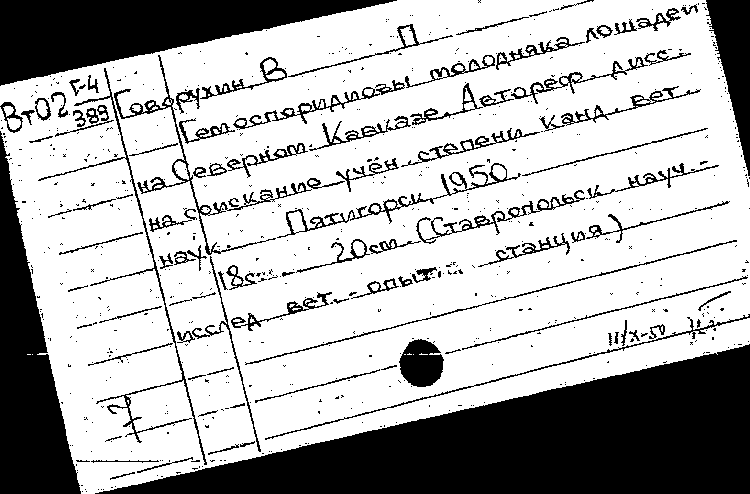 Вт02 Г-4/389
Говорухин, В П
Гемоспоридиозы молодняка лошадей
на Северном Кавказе. Автореф. дисс.
на соискание учён. степени канд. вет.
наук. Пятигорск, 1950.
18с. 20см. (Ставропольск. науч.-
исслед вет.-опытн. станция)
11/X-50
7